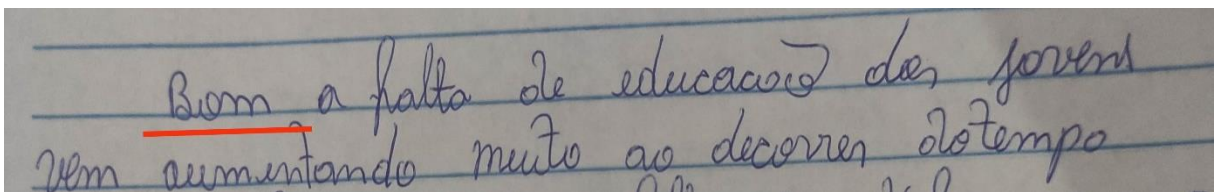 Bom a falta de educacaõ dos jovens
vem aumentando muito ao decorrer dotempo